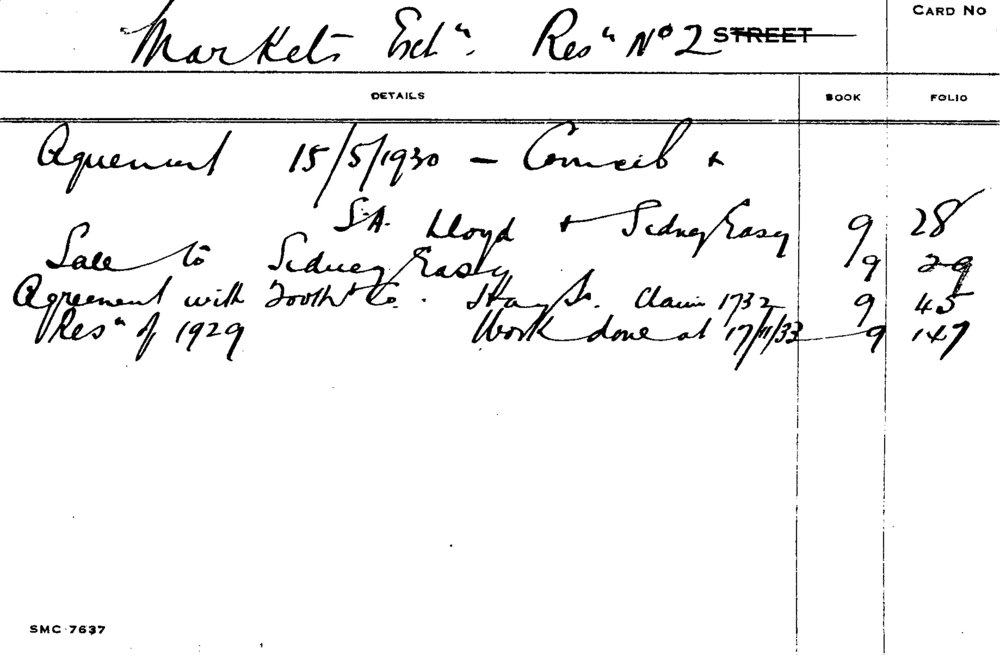 CARD NO
Markets Extn. Resn No 2 STREET
DETAILS BOOK FOLIO
Agreement 15/5/1930 — Council +
S.A. Lloyd + Sidney Easy 9 28
Sale to Sidney Easy 9 29
Agreement with Tooth & Co. Hay St. Claim 1732 9 45
Resn of 1929 Work done at 17/11/33 9 147
SMC 7637